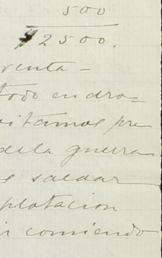 500
$2500.
venta -
todo en dro-
sitamos pre
de la guerra
e saldar
plotacion
i comiendo